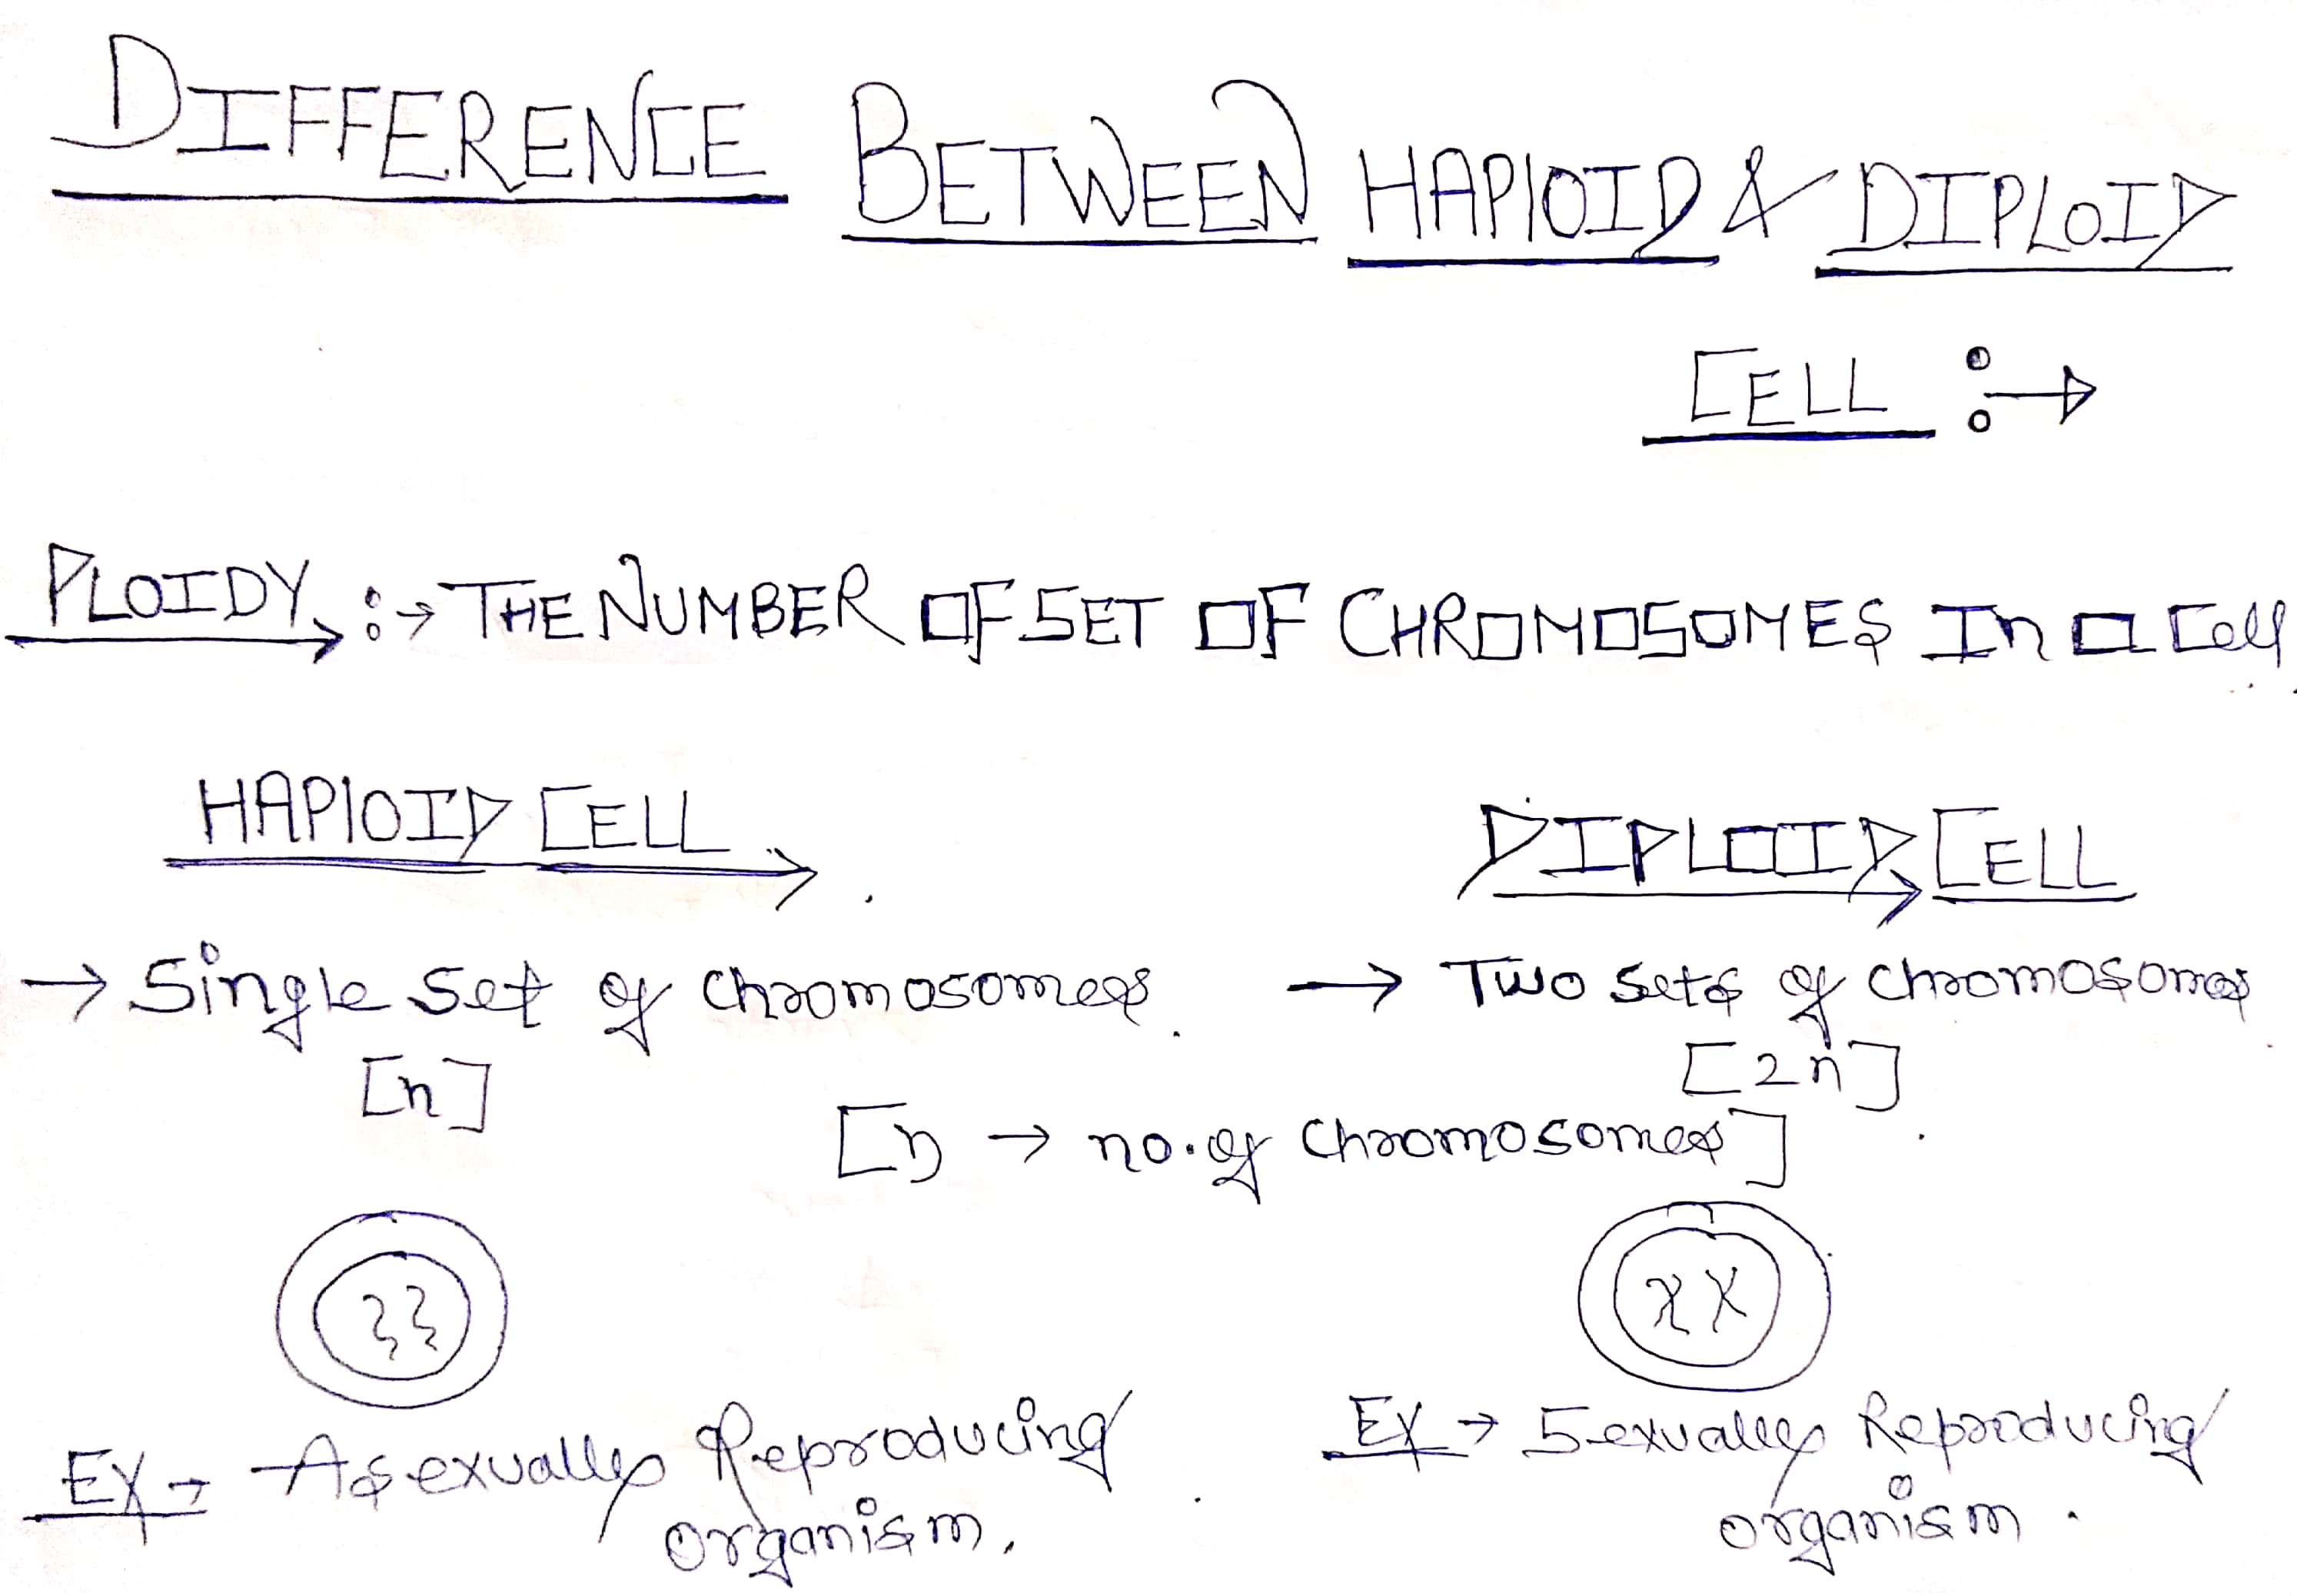 DIFFERENCE BETWEEN HAPlOID & DIPLOID
CELL :→
PLOIDY :→ THE NUMBER OF SET OF CHROMOSOMES In a Cell
HAPlOID CELL
DIPLOID CELL
→ Single set of chromosomes.
[n]
→ Two sets of chromosomes
[2n]
[n → no. of chromosomes]
EX → Asexually Reproducing
organism.
EX → Sexually Reproducing
organism.